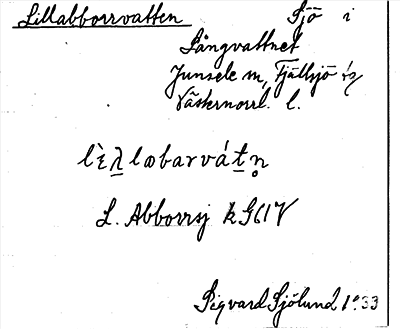 Lillabborrvatten Sjö i
Långvattnet
Junsele sn, Fjällsjö
Västernorrl. l.
L. Abborrsj
Sigvard Sjölund 1933